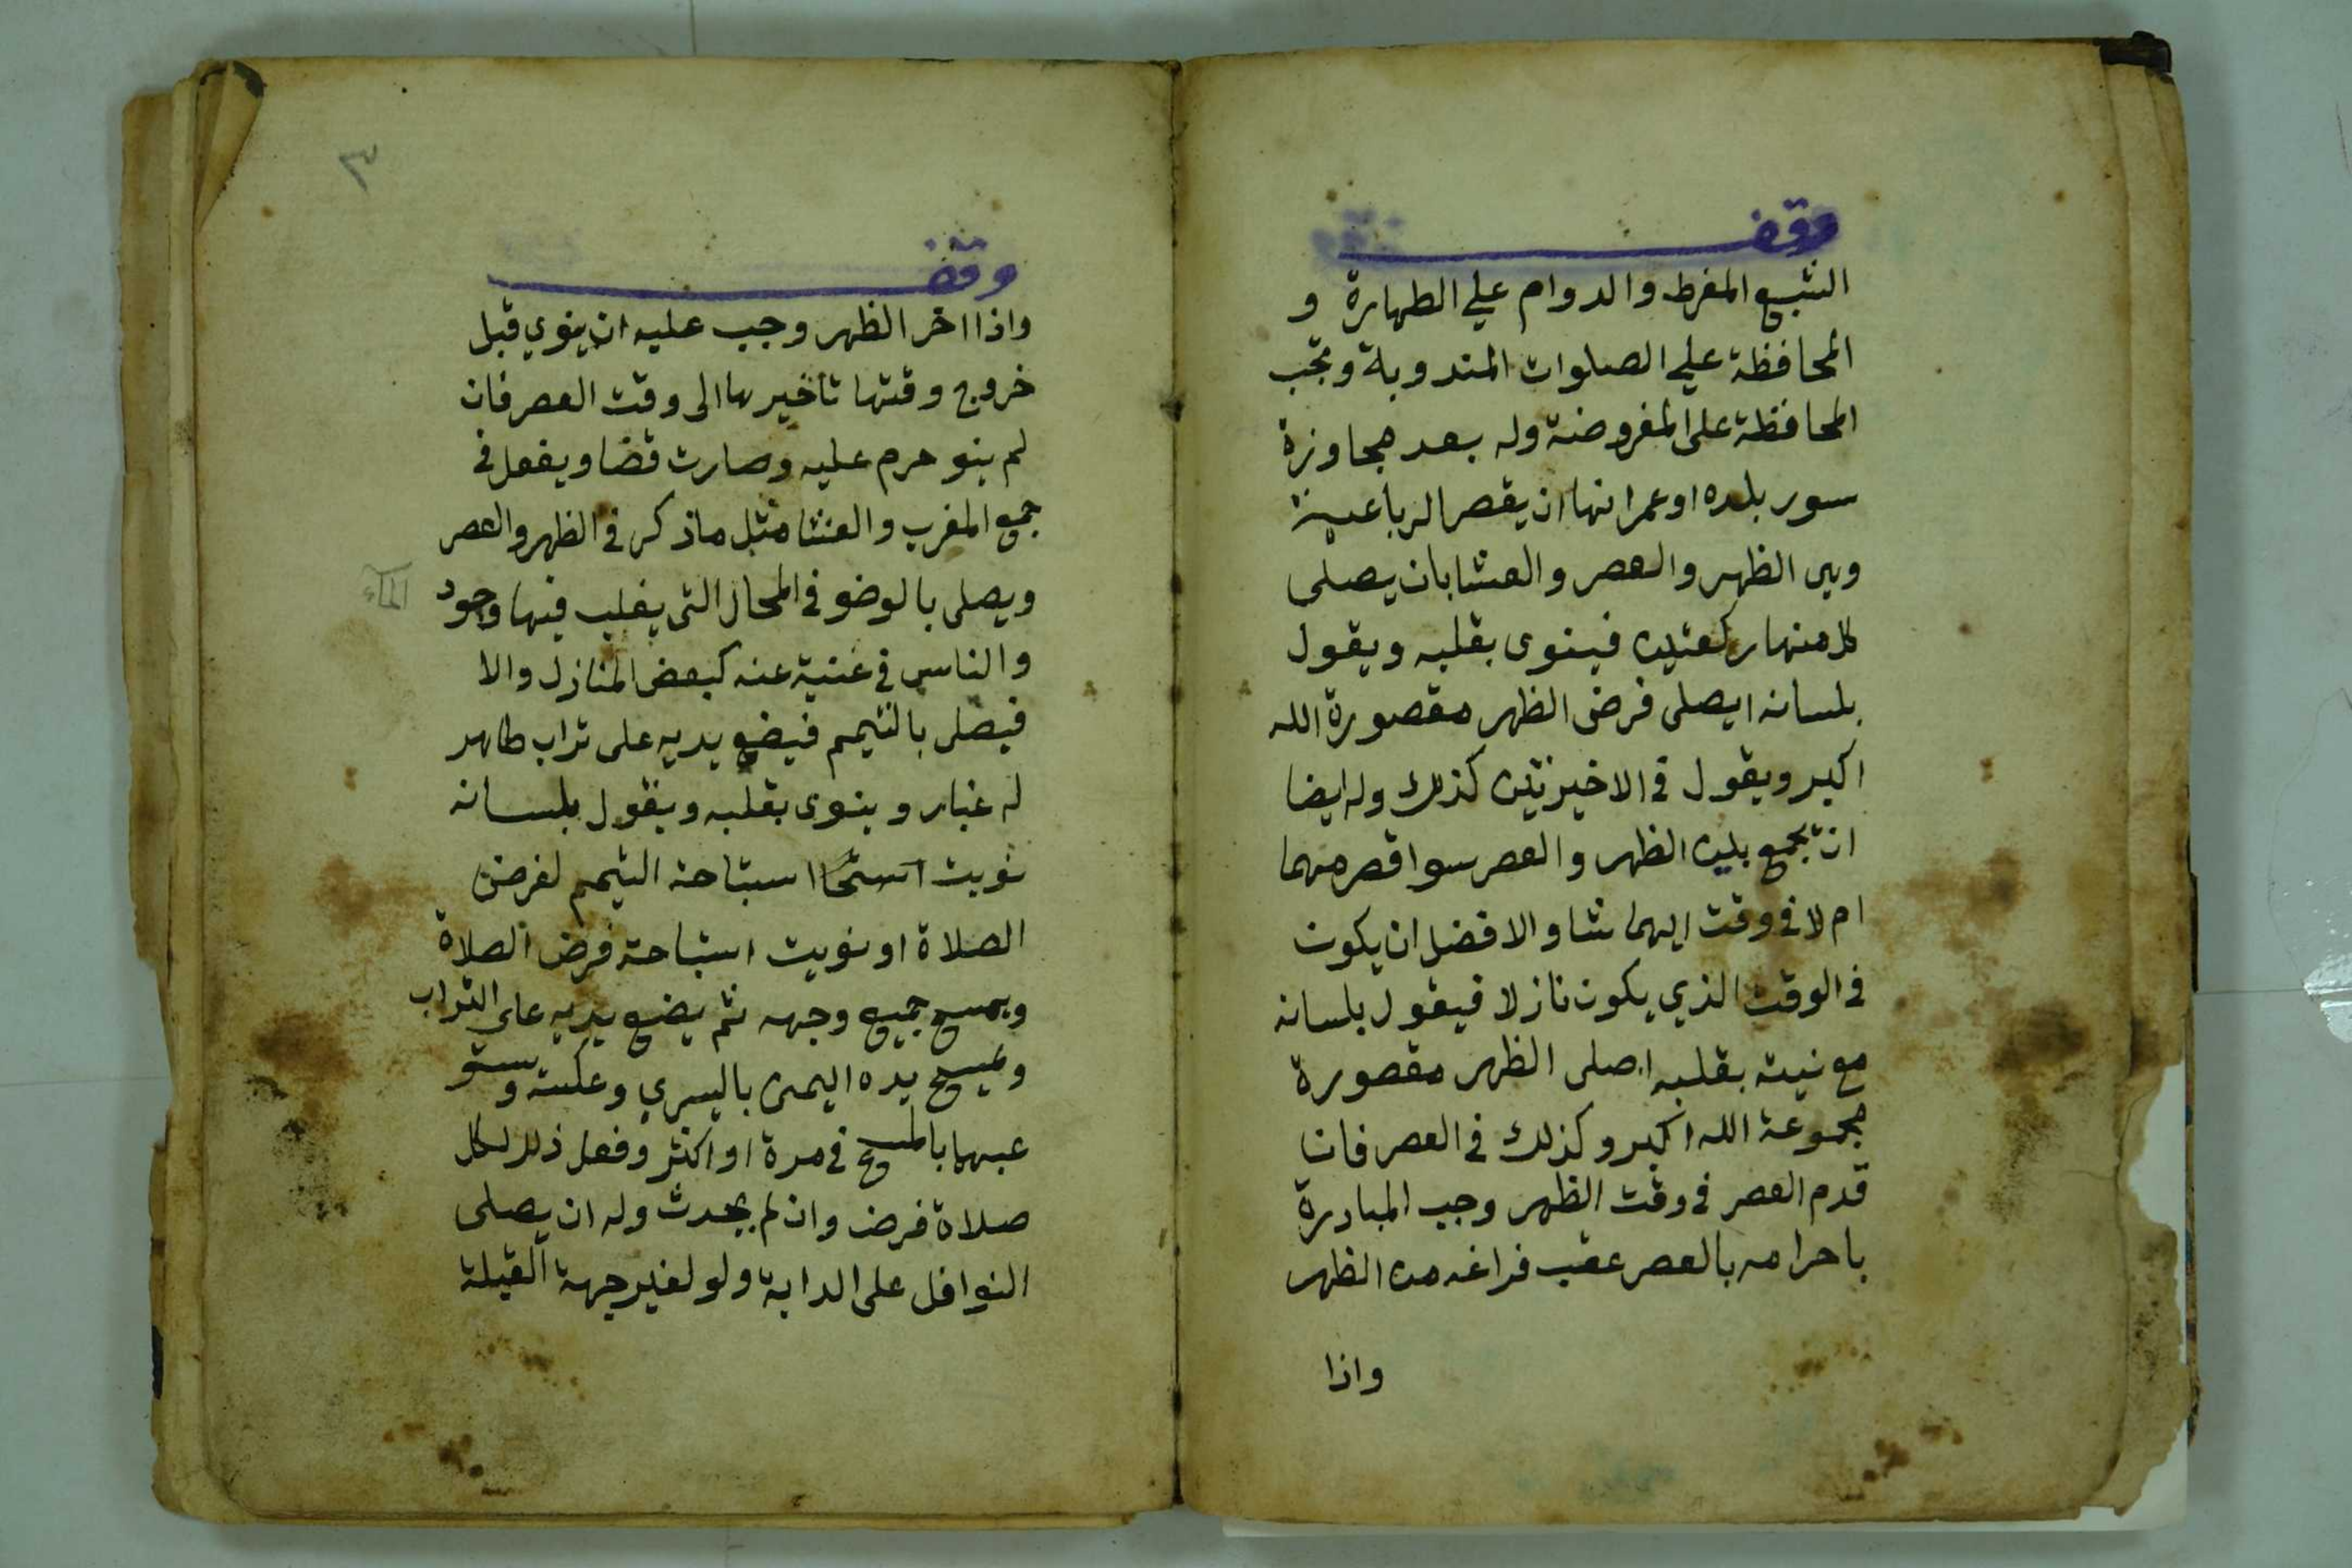 وقف
الشبع المفرط والدوام علي الطهارة و
المحافظة علي الصلوات المندوبة وتجب
المحافظة على المفروضة وله بعد مجاوزة
سور بلده او عمرانها ان يقصر الرباعية
وهي الظهر والعصر والعشا بان يصلى
كلا منها ركعتين فينوى بقلبه ويقول
بلسانه اصلى فرض الظهر مقصورة الله
اكبر ويقول في الاخيرتين كذلك وله ايضا
ان يجمع بين الظهر والعصر سوا قصرهما
ام لا في وقت ايهما شا والافضل ان يكون
في الوقت الذي يكون نازلا فيقول بلسانه
مع نيته بقلبه اصلى الظهر مقصورة
مجموعة الله اكبر وكذلك في العصر فان
قدم العصر في وقت الظهر وجب المبادرة
باحرامه بالعصر عقب فراغه من الظهر
واذا
٣
وقف
واذا اخر الظهر وجب عليه ان ينوي قبل
خروج وقتها تاخيرها الى وقت العصر فان
لم ينو حرم عليه وصارت قضا ويفعل في
جمع المغرب والعشا مثل ما ذكر في الظهر والعصر
ويصلى بالوضو في المحال التى يغلب فيها وجود الماء
والناس في غنية عنه كبعض المنازل والا
فيصلى بالتيمم فيضع يديه على تراب طاهر
له غبار وينوى بقلبه ويقول بلسانه
نويت استبا استباحة التيمم لفرض
الصلاة او نويت استباحة فرض الصلاة
ويمسح جميع وجهه ثم يضع يديه على التراب
ويمسح يده اليمنى باليسري وعكسه و
عبهما بالمسح في مرة او اكثر وفعل ذلك لكل
صلاة فرض وان لم يحدث وله ان يصلى
النوافل على الدابة ولو لغير جهة القبلة